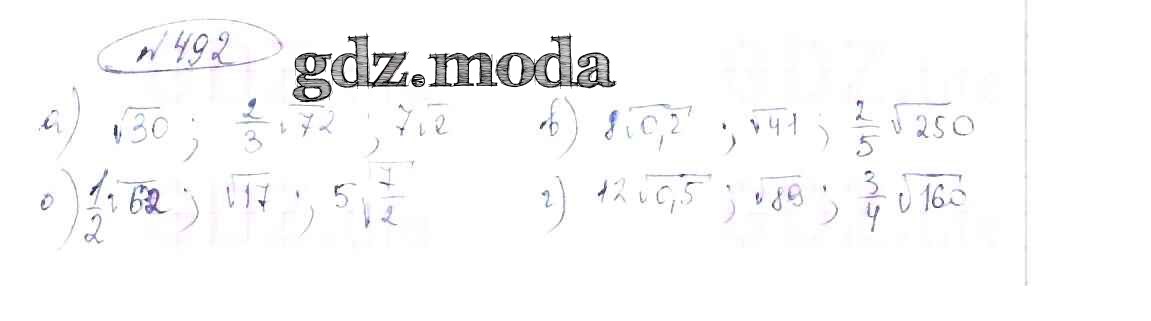 №492
gdz.moda
а) √30; 2/3 √72; 7√2
в) 8√0,2; √41; 2/5 √250
б) 1/2 √62; √17; 5√7/2
г) 12√0,5; √89; 3/4 √160